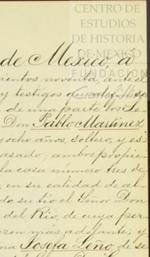 CENTRO DE
ESTUDIOS
DE HISTORIA
DE MEXICO
FUNDACIÓN
de Mexico, á
cientos noventa, ante
y testigos
de una parte los Se
Don Pablo Martinez
ocho años, soltero, y es
casado, ambos propie
la casa número tres de
en su calidad de al
do, su tio el Señor Don
del Rio, de cuya per
son mas adelante; y
na Josefa Zeño, de se